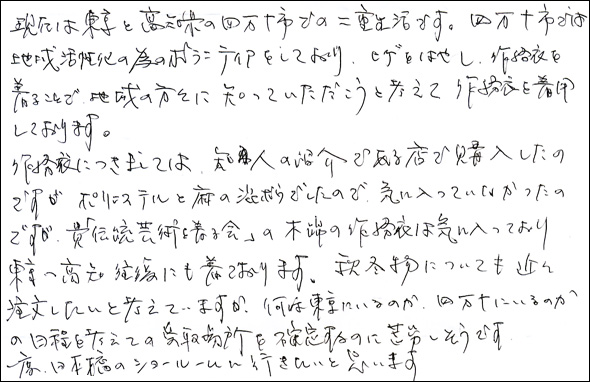 現在は東京と高知県の四万十市での二重生活です。四万十市では
地域活性化の為のボランティアをしており、ヒゲをはやし、作務衣を
着ることで地域の方々に知っていただこうと考えて作務衣を着用
しております。
作務衣につきましては、知人の紹介である店で購入したの
ですが ポリエステルと麻の混紡でしたので、気に入っていなかったの
ですが、貴「伝統芸術を着る会」の木綿の作務衣は気に入っており
東京〜高知往復にも着ております。秋冬物についても近々
注文したいと考えていますが、何時東京にいるのか、四万十にいるのか
の日程を考えての受取場所を確定するのに苦労しそうです
一度、日本橋のショールームに行きたいと思います